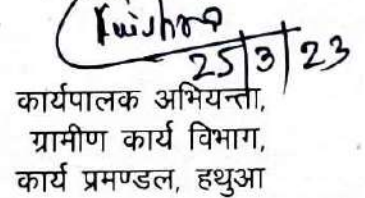 25/3/23
कार्यपालक अभियन्ता,
ग्रामीण कार्य विभाग,
कार्य प्रमण्डल, हथुआ